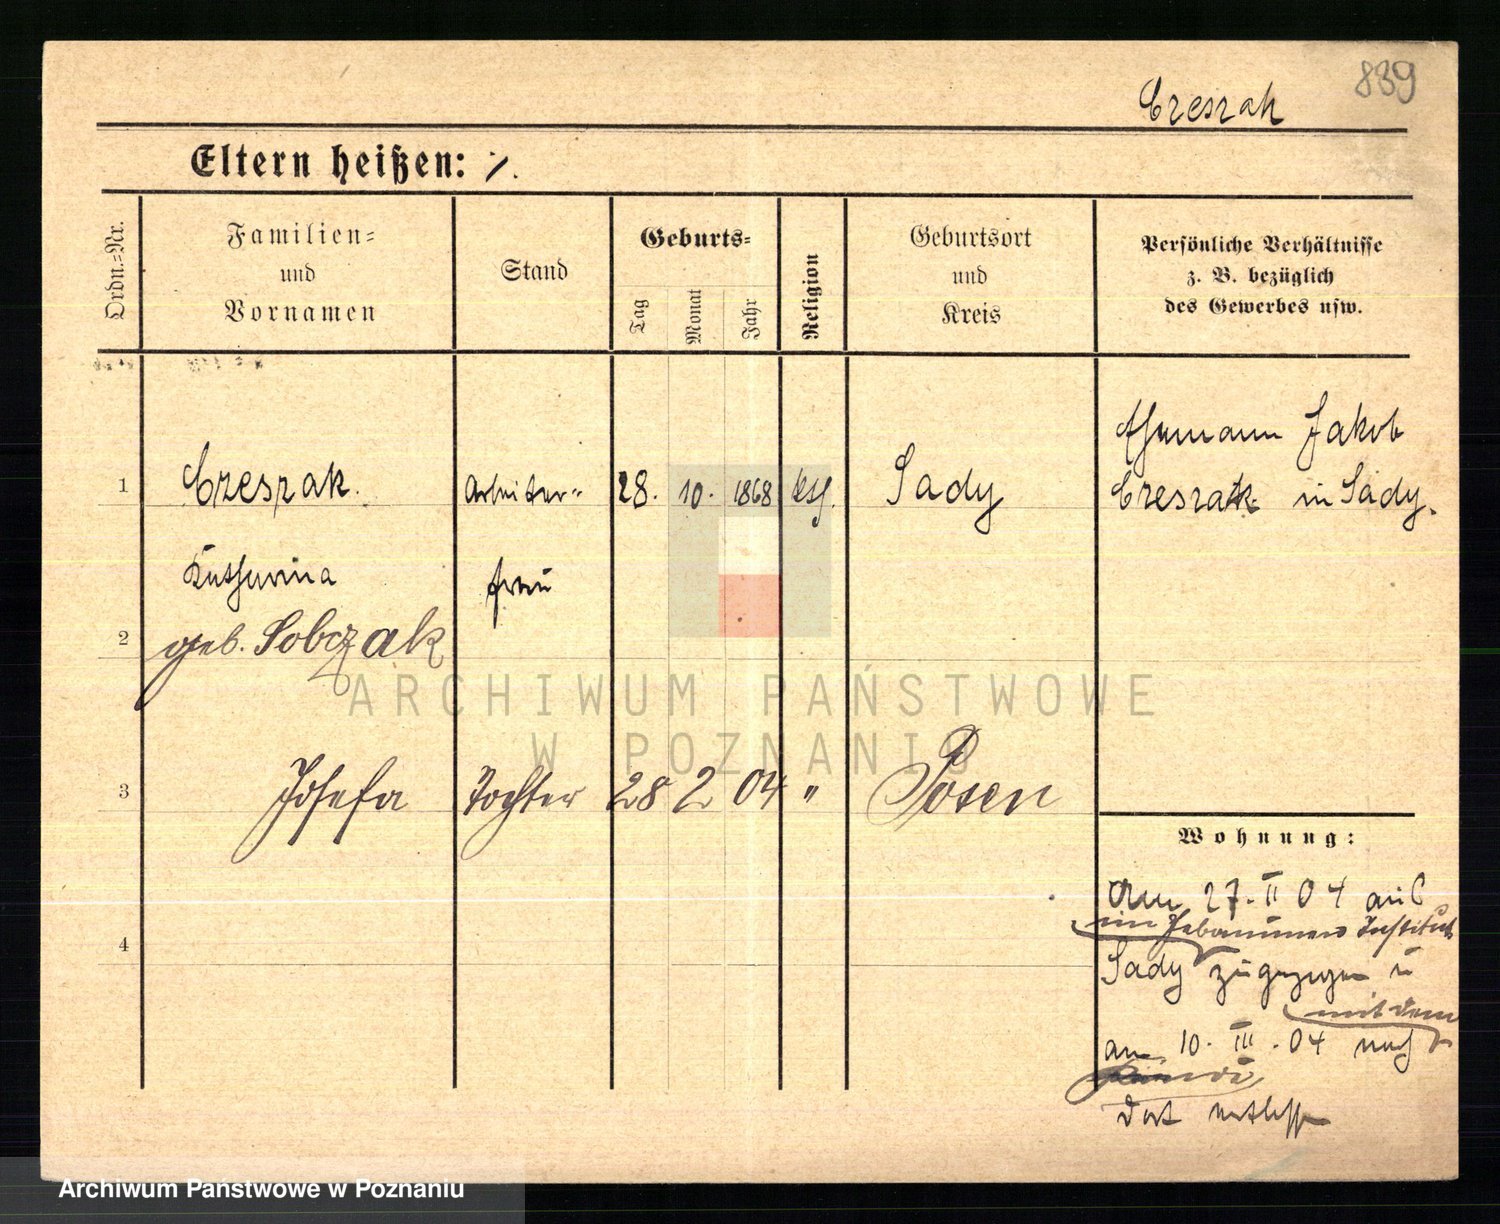 839
Czeszak
Eltern heißen: ·/.
Ordn.-Nr.
Familien-
und
Vornamen
Stand
Geburts-
Tag
Monat
Jahr
Religion
Geburtsort
und
Kreis
Persönliche Verhältnisse
z. B. bezüglich
des Gewerbes usw.
1
Czeszak.
Arbeiter-
28.
10.
1868
kth.
Sady
Ehemann Jakob
Czeszak in Sady.
Katharina
frau
2
geb. Sobczak
ARCHIWUM PAŃSTWOWE
W POZNANIU
3
Josefa
Tochter
28
2
04
"
Posen
Wohnung:
am 27. II 04 aus
im Hebammen Institut
4
Sady zugezogen u
mit dem
am 10. III. 04 nach
Kinde
dort entlassen
Archiwum Państwowe w Poznaniu